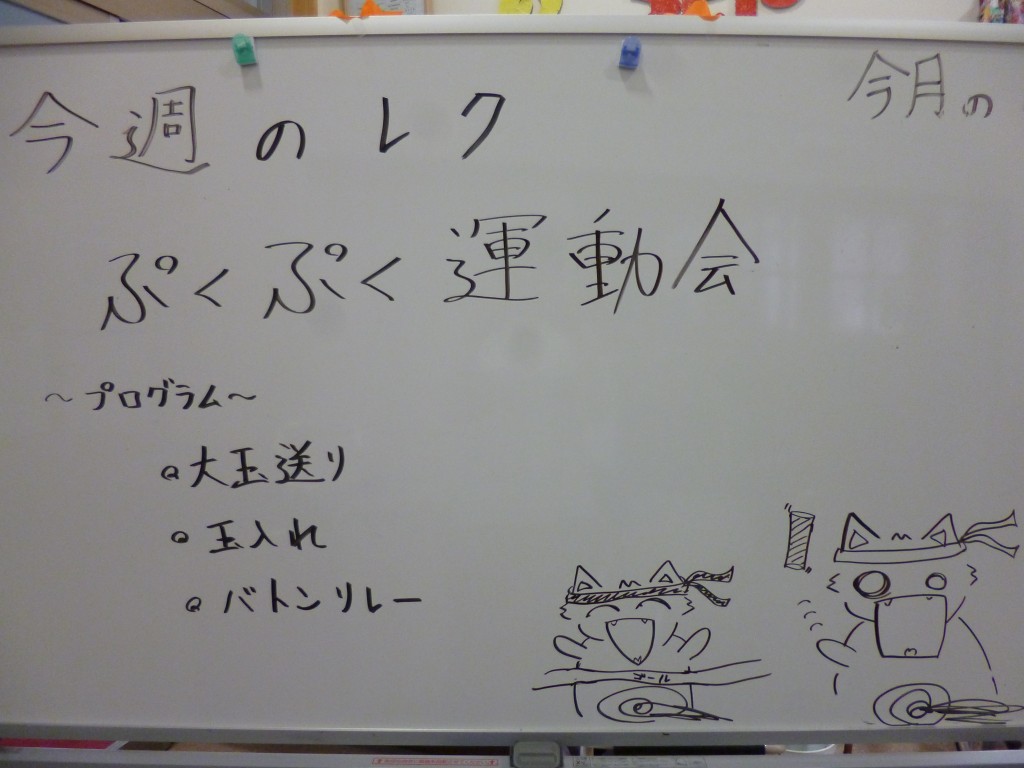 今週のレク
今月の
ぷくぷく運動会
～プログラム～
大玉送り
玉入れ
バトンリレー
ゴール